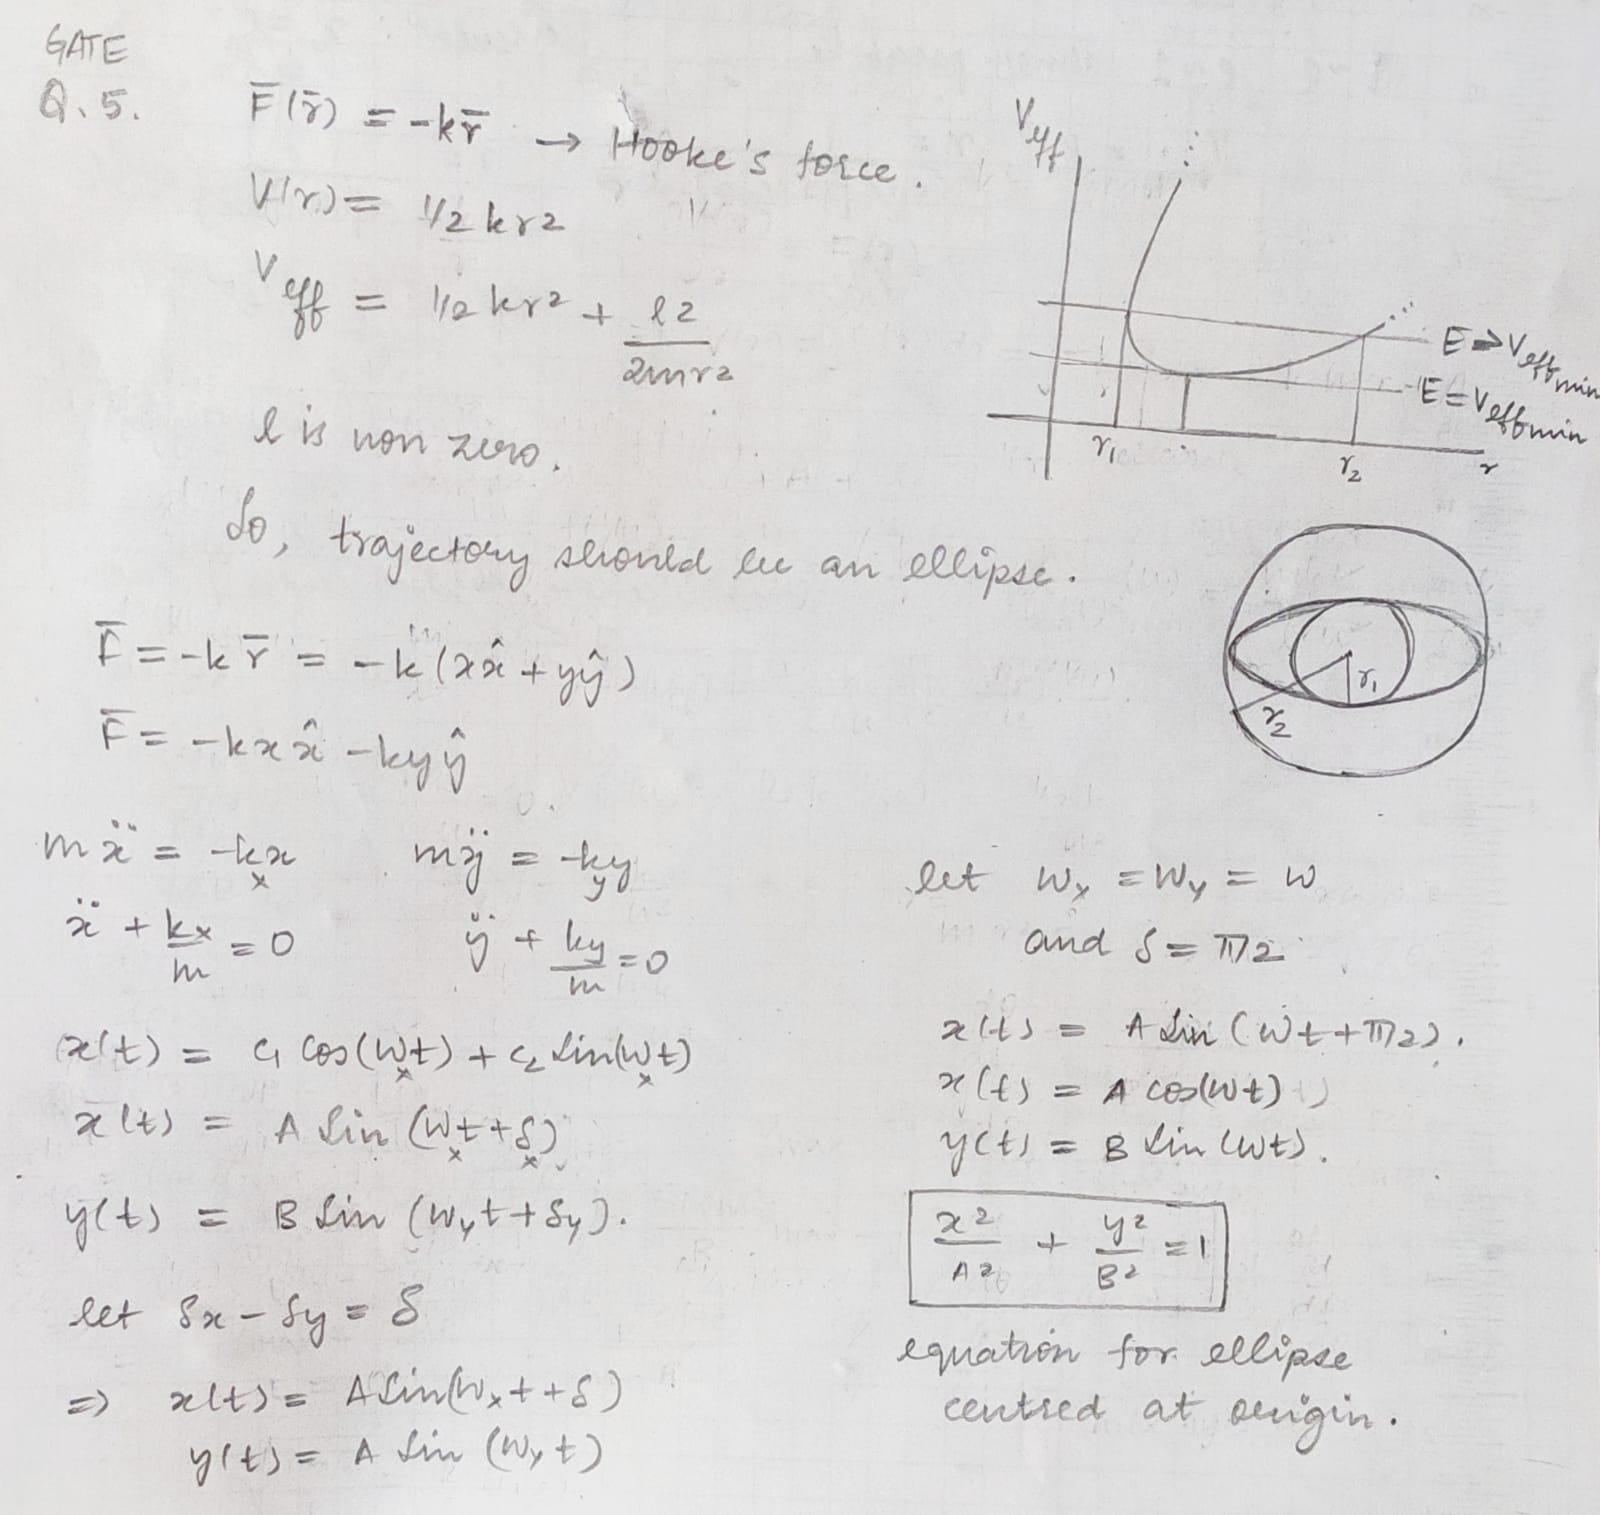 GATE
Q.5.
F̄(r̄) = -kr̄ → Hooke's force.
V(r) = 1/2 kr2
Veff = 1/2 kr2 + l2/2mr2
l is non zero.
So, trajectory should be an ellipse.
Veff
E => Veffmin
E = Veffmin
r1
r2
r
r1
r2
F̄ = -k r̄ = -k(xx̂ + yŷ)
F̄ = -kxx̂ - kyŷ
mẍ = -kxx
mÿ = -kyy
ẍ + kx/m = 0
ÿ + ky/m = 0
x(t) = c1 cos(wxt) + c2 sin(wxt)
x(t) = A sin(wxt + δx)
y(t) = B sin(wyt + δy).
let δx - δy = δ
=> x(t) = A sin(wxt + δ)
y(t) = A sin(wyt)
let wx = wy = w
and δ = π/2
x(t) = A sin(wt + π/2).
x(t) = A cos(wt)
y(t) = B sin(wt).
x2/A2 + y2/B2 = 1
equation for ellipse
centred at origin.